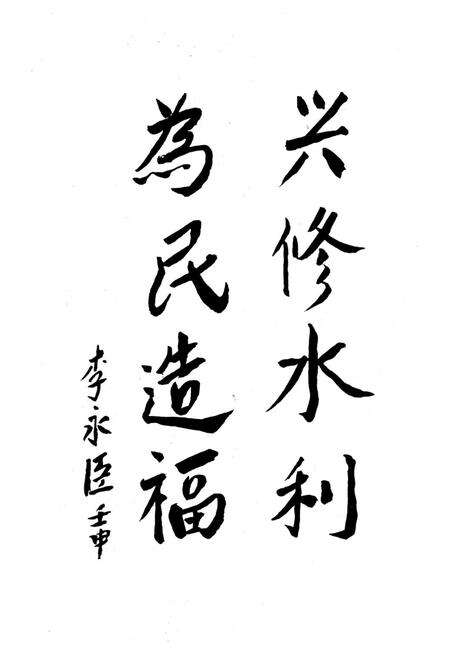 兴修水利
為民造福
李永臣 壬申